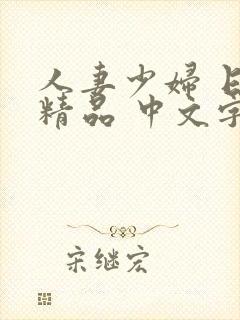 人妻少婦
精品 中文字
宋继宏